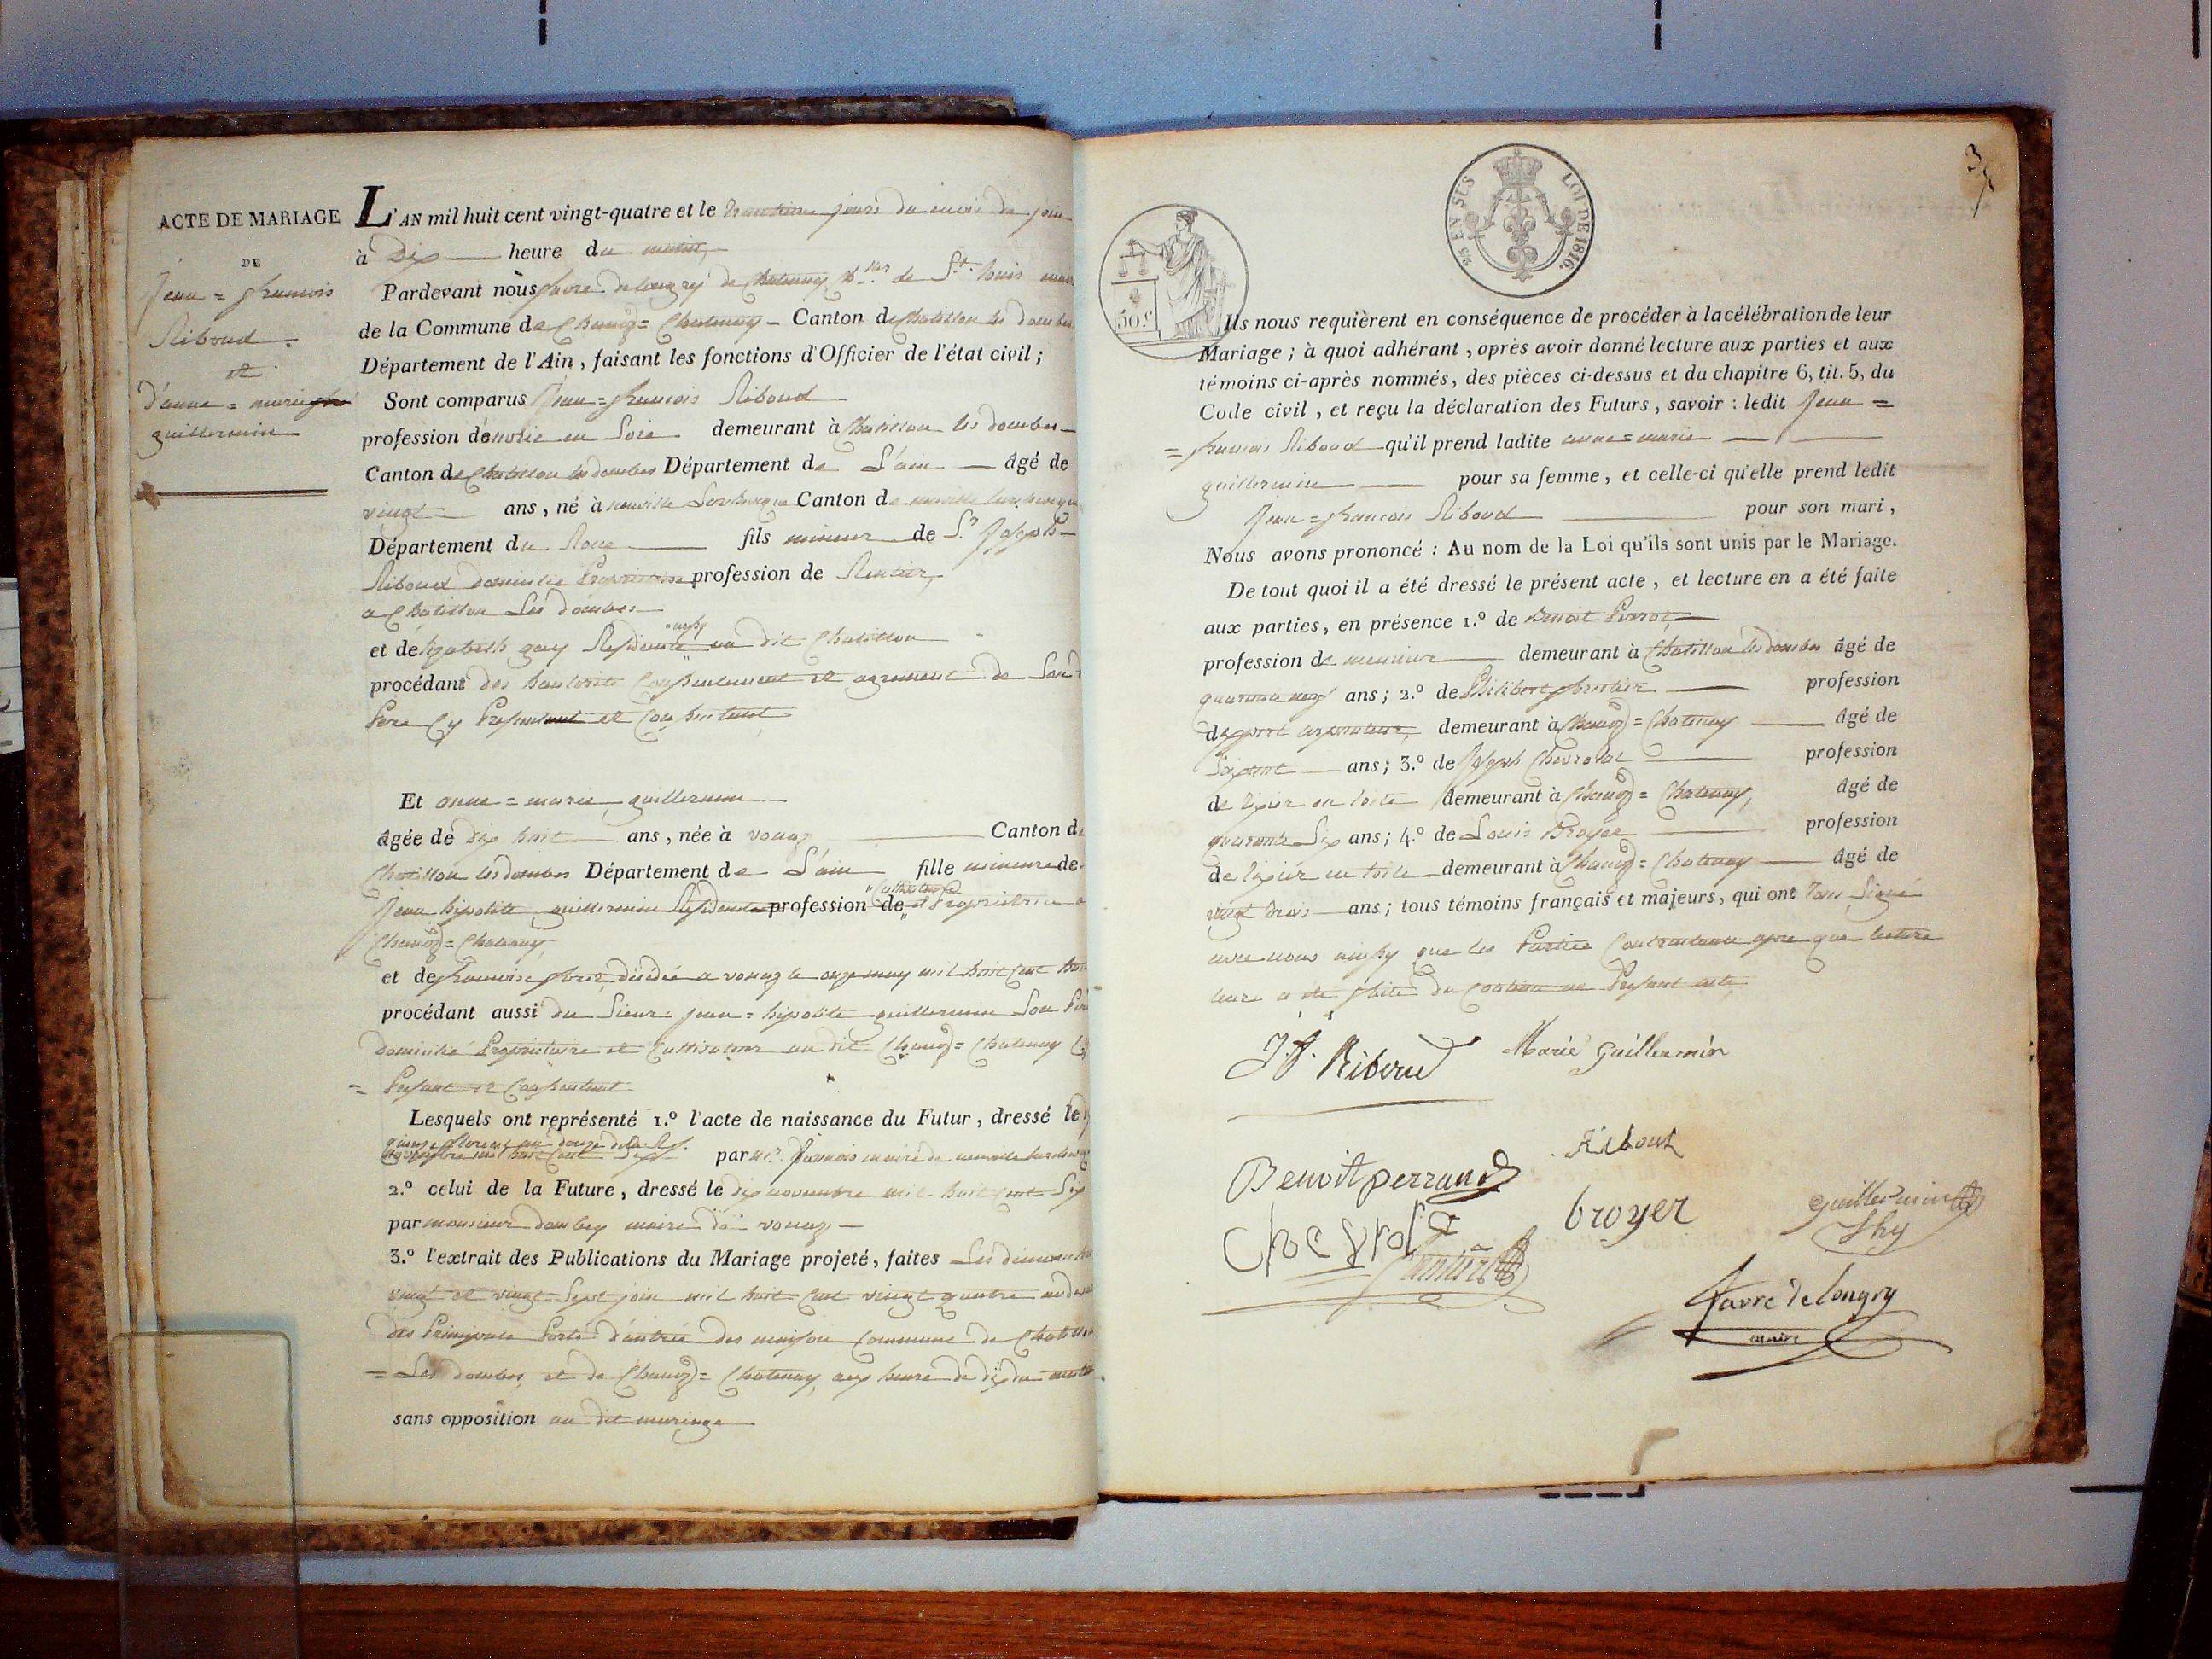 ACTE DE MARIAGE
DE
Jean = francois
Riboud
et
d'anne = marie
guillermin
L'AN mil huit cent vingt-quatre et le trentieme jours du mois de juin
à Dix heure du matin,
Pardevant nous favre delongry de Chatenay de St. Louis
de la Commune de Chanoz = Chatenay - Canton de Chatillon les dombes
Département de l'Ain, faisant les fonctions d'Officier de l'état civil ;
Sont comparus Jean = francois Riboud
profession d' en Soie demeurant à Chatillon les dombes
Canton de Chatillon les dombes Département de L'ain âgé de
vingt ans, né à neuville Canton de neuville
Département du Rone fils mineur de Sr. Joseph
Riboud domicilie Proprietaire profession de Rentier,
a Chatillon Les dombes
et de lizabeth gay Residente aussy au dit Chatillon
procédant des consentement et agrement de Son
Pere Cy Presentant et Consentant
Et anne = marie guillermin
âgée de dix huit ans, née à vonaz Canton de
Chatillon les dombes Département de L'ain fille mineure de
Jean hipolite guillermin Residente profession de Cultivateur et Proprietaire a
Chanoz = Chatenay,
et de francoise décédée a vonaz le onze may mil huit cent
procédant aussi du Sieur jean = hipolite guillermin Son Pere
domicilié Proprietaire et Cultivateur au dit Chanoz = Chatenay Cy
= Present et Consentant
Lesquels ont représenté 1.º l'acte de naissance du Futur, dressé le
par mr. maire de neuville
2.º celui de la Future, dressé le dix novembre mil huit cent Six
par monsieur dombey maire de vonaz
3.º l'extrait des Publications du Mariage projeté, faites Les dimanches
vingt et vingt Sept juin mil huit cent vingt quatre au devant
des Principale Porte d'entrée des maison Commune de Chatillon
= Les dombes, et de Chanoz = Chatenay, aux heure de dix du matin
sans opposition au dit mariage
3
25 EN SUS
LOI DE 1816.
50.C
Ils nous requièrent en conséquence de procéder à la célébration de leur
Mariage ; à quoi adhérant, après avoir donné lecture aux parties et aux
témoins ci-après nommés, des pièces ci-dessus et du chapitre 6, tit. 5, du
Code civil, et reçu la déclaration des Futurs, savoir : ledit Jean =
= francois Riboud qu'il prend ladite anne = marie
guillermin pour sa femme, et celle-ci qu'elle prend ledit
Jean = francois Riboud pour son mari,
Nous avons prononcé : Au nom de la Loi qu'ils sont unis par le Mariage.
De tout quoi il a été dressé le présent acte, et lecture en a été faite
aux parties, en présence 1.º de Benoit
profession de demeurant à Chatillon les dombes âgé de
quarante neuf ans ; 2.º de Philibert profession
d demeurant à Chanoz = Chatenay âgé de
ans ; 3.º de Joseph Chevrolat profession
de tixier en toile demeurant à Chanoz = Chatenay, âgé de
quarante Six ans ; 4.º de Louis Broyer profession
de tixier en toile demeurant à Chanoz = Chatenay âgé de
vingt trois ans ; tous témoins français et majeurs, qui ont tous Signé
avec nous aussy que les Parties Contractante apres que lecture
leure a été faite du contenu au Present acte
J.f. Riboud
Marie guillermin
Riboud
Benoit perrand
broyer
guillermin
Chevrolat
favre delongry
maire